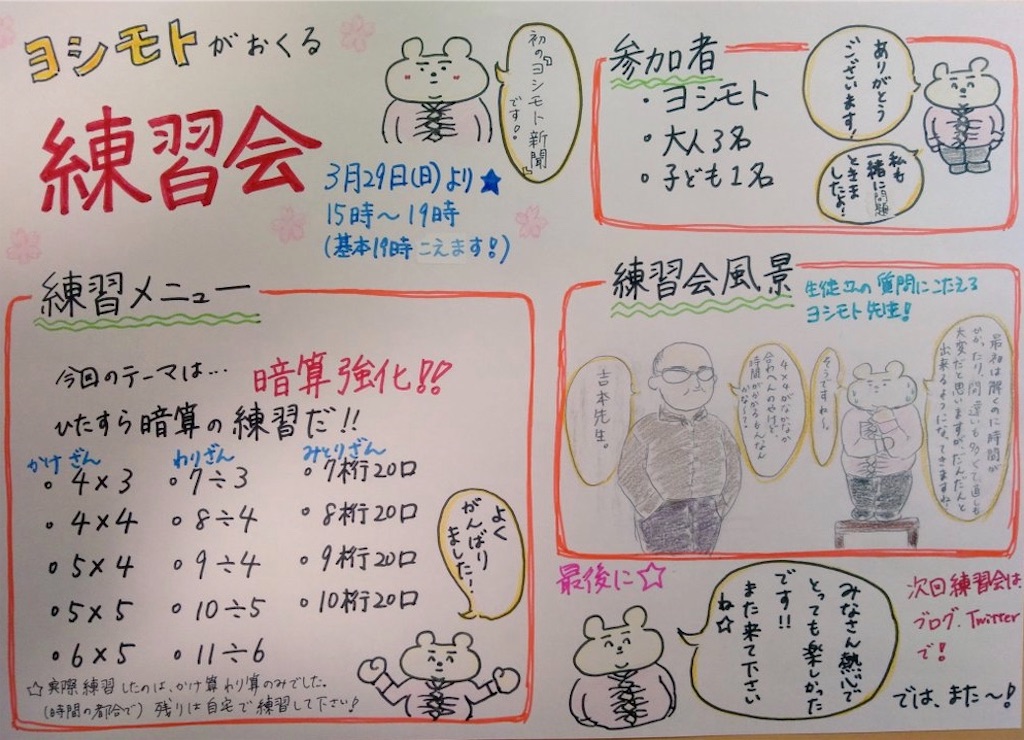 ヨシモトがおくる
練習会
初の『ヨシモト新聞』
です!!
3月29日(日)より★
15時~19時
(基本19時こえます!)
参加者
・ヨシモト
・大人3名
・子ども1名
ありがとう
ございます!
私も
一緒に問題
ときま
したよ!
練習メニュー
今回のテーマは…
暗算強化!!
ひたすら暗算の練習だ!!
かけざん
4×3
4×4
5×4
5×5
6×5
わりざん
7÷3
8÷4
9÷4
10÷5
11÷6
みとりざん
7桁20口
8桁20口
9桁20口
10桁20口
よく
がんばり
ました!
☆実際練習したのは、かけ算わり算のみでした。
(時間の都合で) 残りは自宅で練習して下さい♪
練習会風景
生徒さんの質問にこたえる
ヨシモト先生!
吉本先生。
4×4がなかなか
合わへんのやけど、
時間がかかるもんなん
かな~?
そうですね~。
最初は解くのに時間が
かかったり、間違いも多くて直しも
大変だと思いますがだんだんと
出来るようになってきますね!
最後に☆
みなさん熱心で
とっても楽しかった
です!!
また来て下さい
ね☆
次回練習会は
ブログ、Twitter
で!
では、また~!